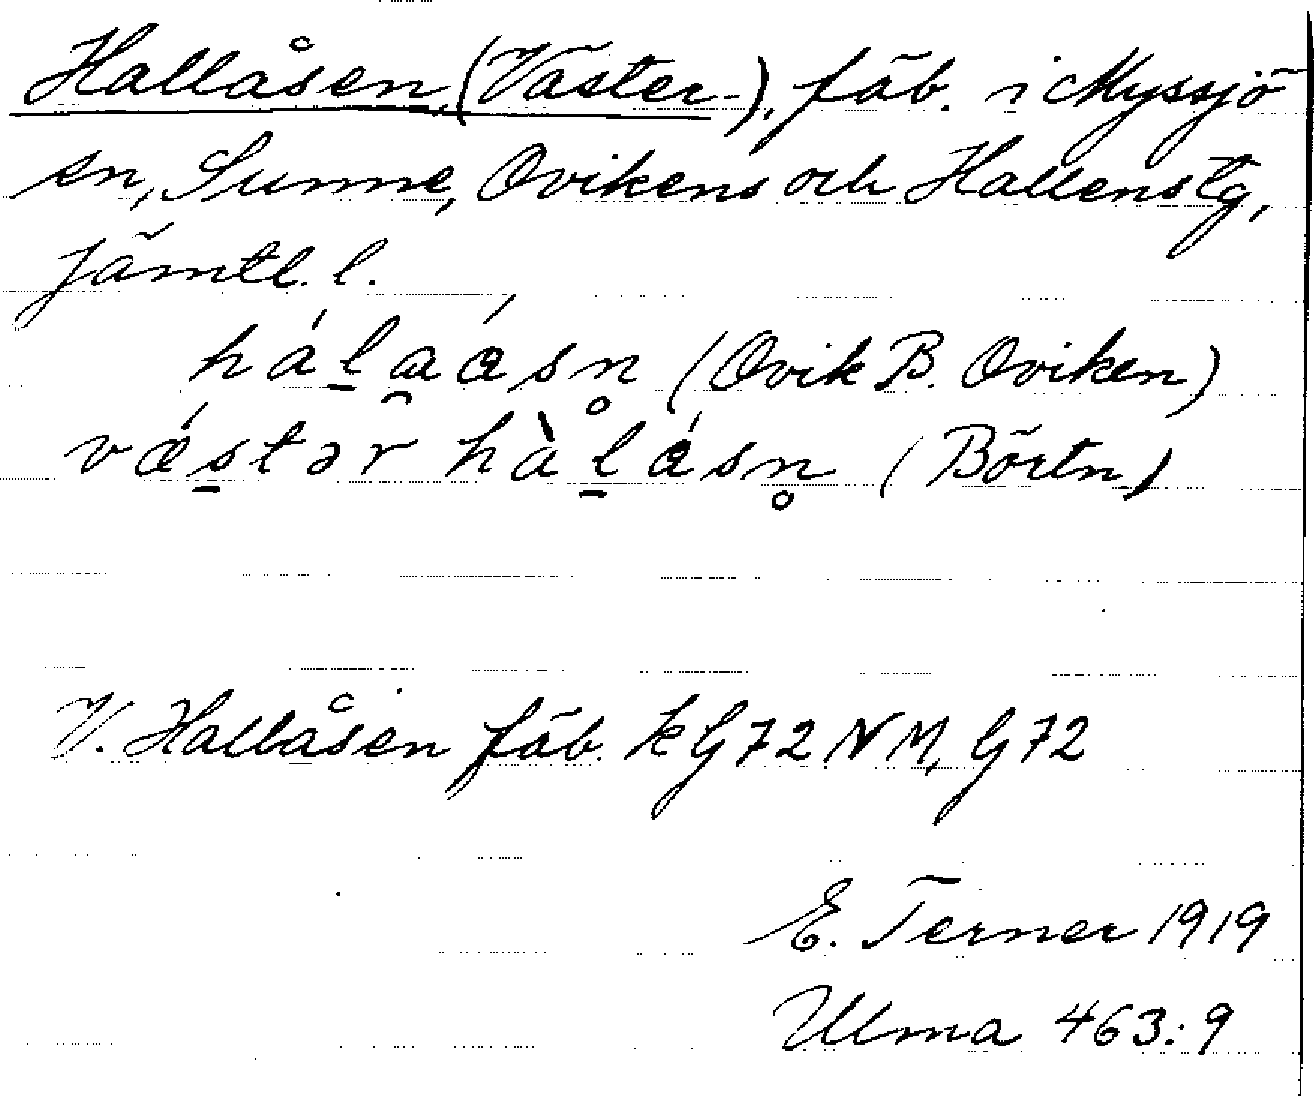 Hallåsen (Väster-), fäb. i Myssjö
sn, Sunne, Ovikens och Hallens tg,
Jämtl. l.
hál̠a̯ǽsn̥ (Ovik B. Oviken)
vǽs̠tər hàl̠ǽsn̥ (Börtn.)
V. Hallåsen fäb. k G 72 NM, G 72
E. Terner 1919
Ulma 463:9